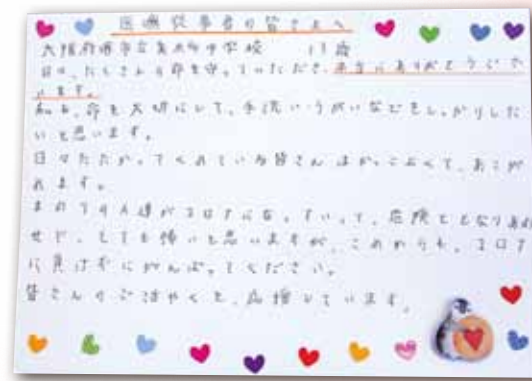 医療従事者の皆さまへ
大阪府堺市立 中学校 13歳
日々、たくさんの命を守っていただき、本当にありがとうござ
います。
私も、命を大切にして、手洗いうがいなどをしっかりした
いと思います。
日々たたかってくれている皆さんはかっこよくて、あこが
れます。
まわりの人達がコロナになっていって、危険ととなりあわ
せで、とても怖いと思いますが、これからも、コロナ
に負けずにがんばってください。
皆さんのご活やくを、応援しています。